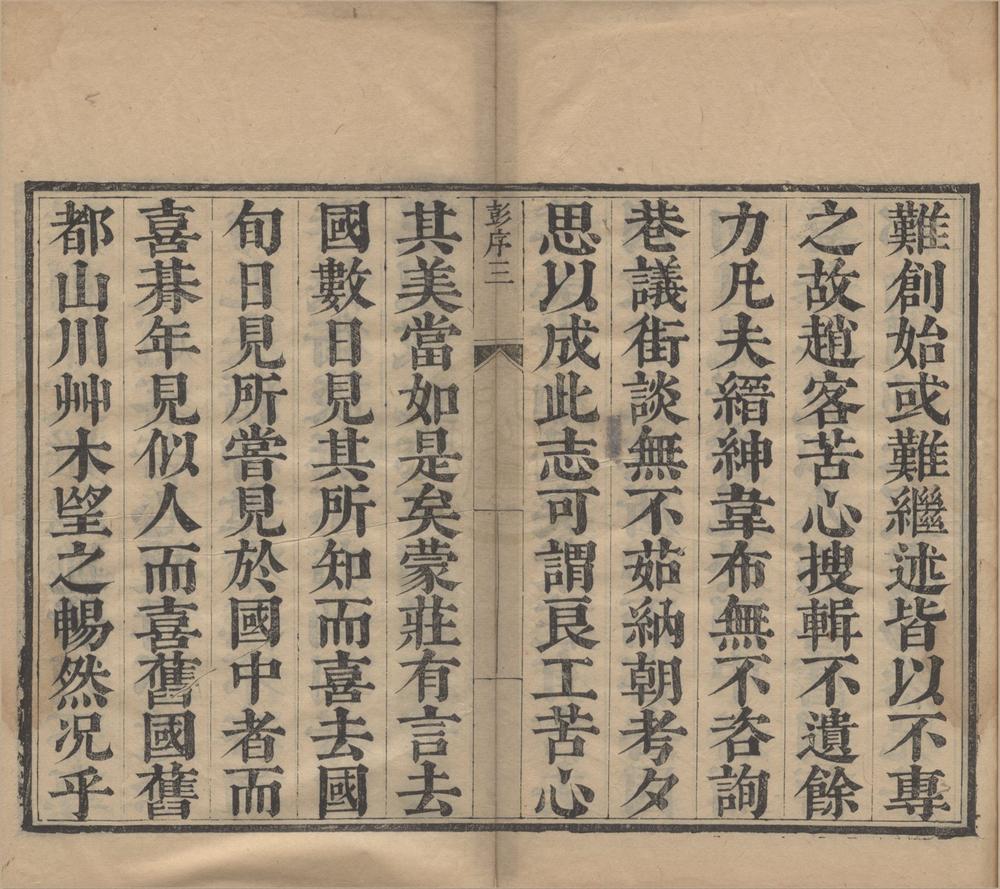 難創始或難繼述皆以不專
之故趙客苦心搜輯不遺餘
力凡夫縉紳韋布無不咨詢
巷議街談無不茹納朝考夕
思以成此志可謂良工苦心
彭序三
其美當如是矣蒙莊有言去
國數日見其所知而喜去國
旬日見所嘗見於國中者而
喜朞年見似人而喜舊國舊
都山川艸木朢之暢然况乎